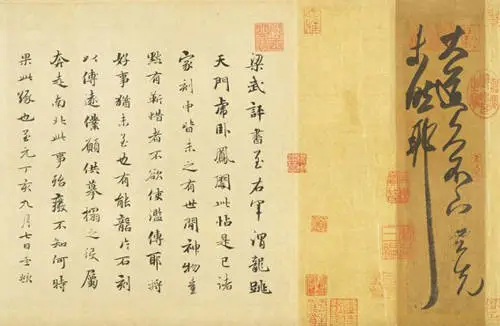 大道久不下与先
未然耶
梁武評書至右軍謂龍跳
天門虎卧鳳閣此帖是已諸
家刻中皆未之有世間神物豈
默有靳惜者不欲使濫傳耶將
好事猶未至也有能礱片石刻
以傳遠僕願供摹搨之役屬
奔走南北此事殆廢不知何時
果此緣也至元丁亥九月七日孟頫